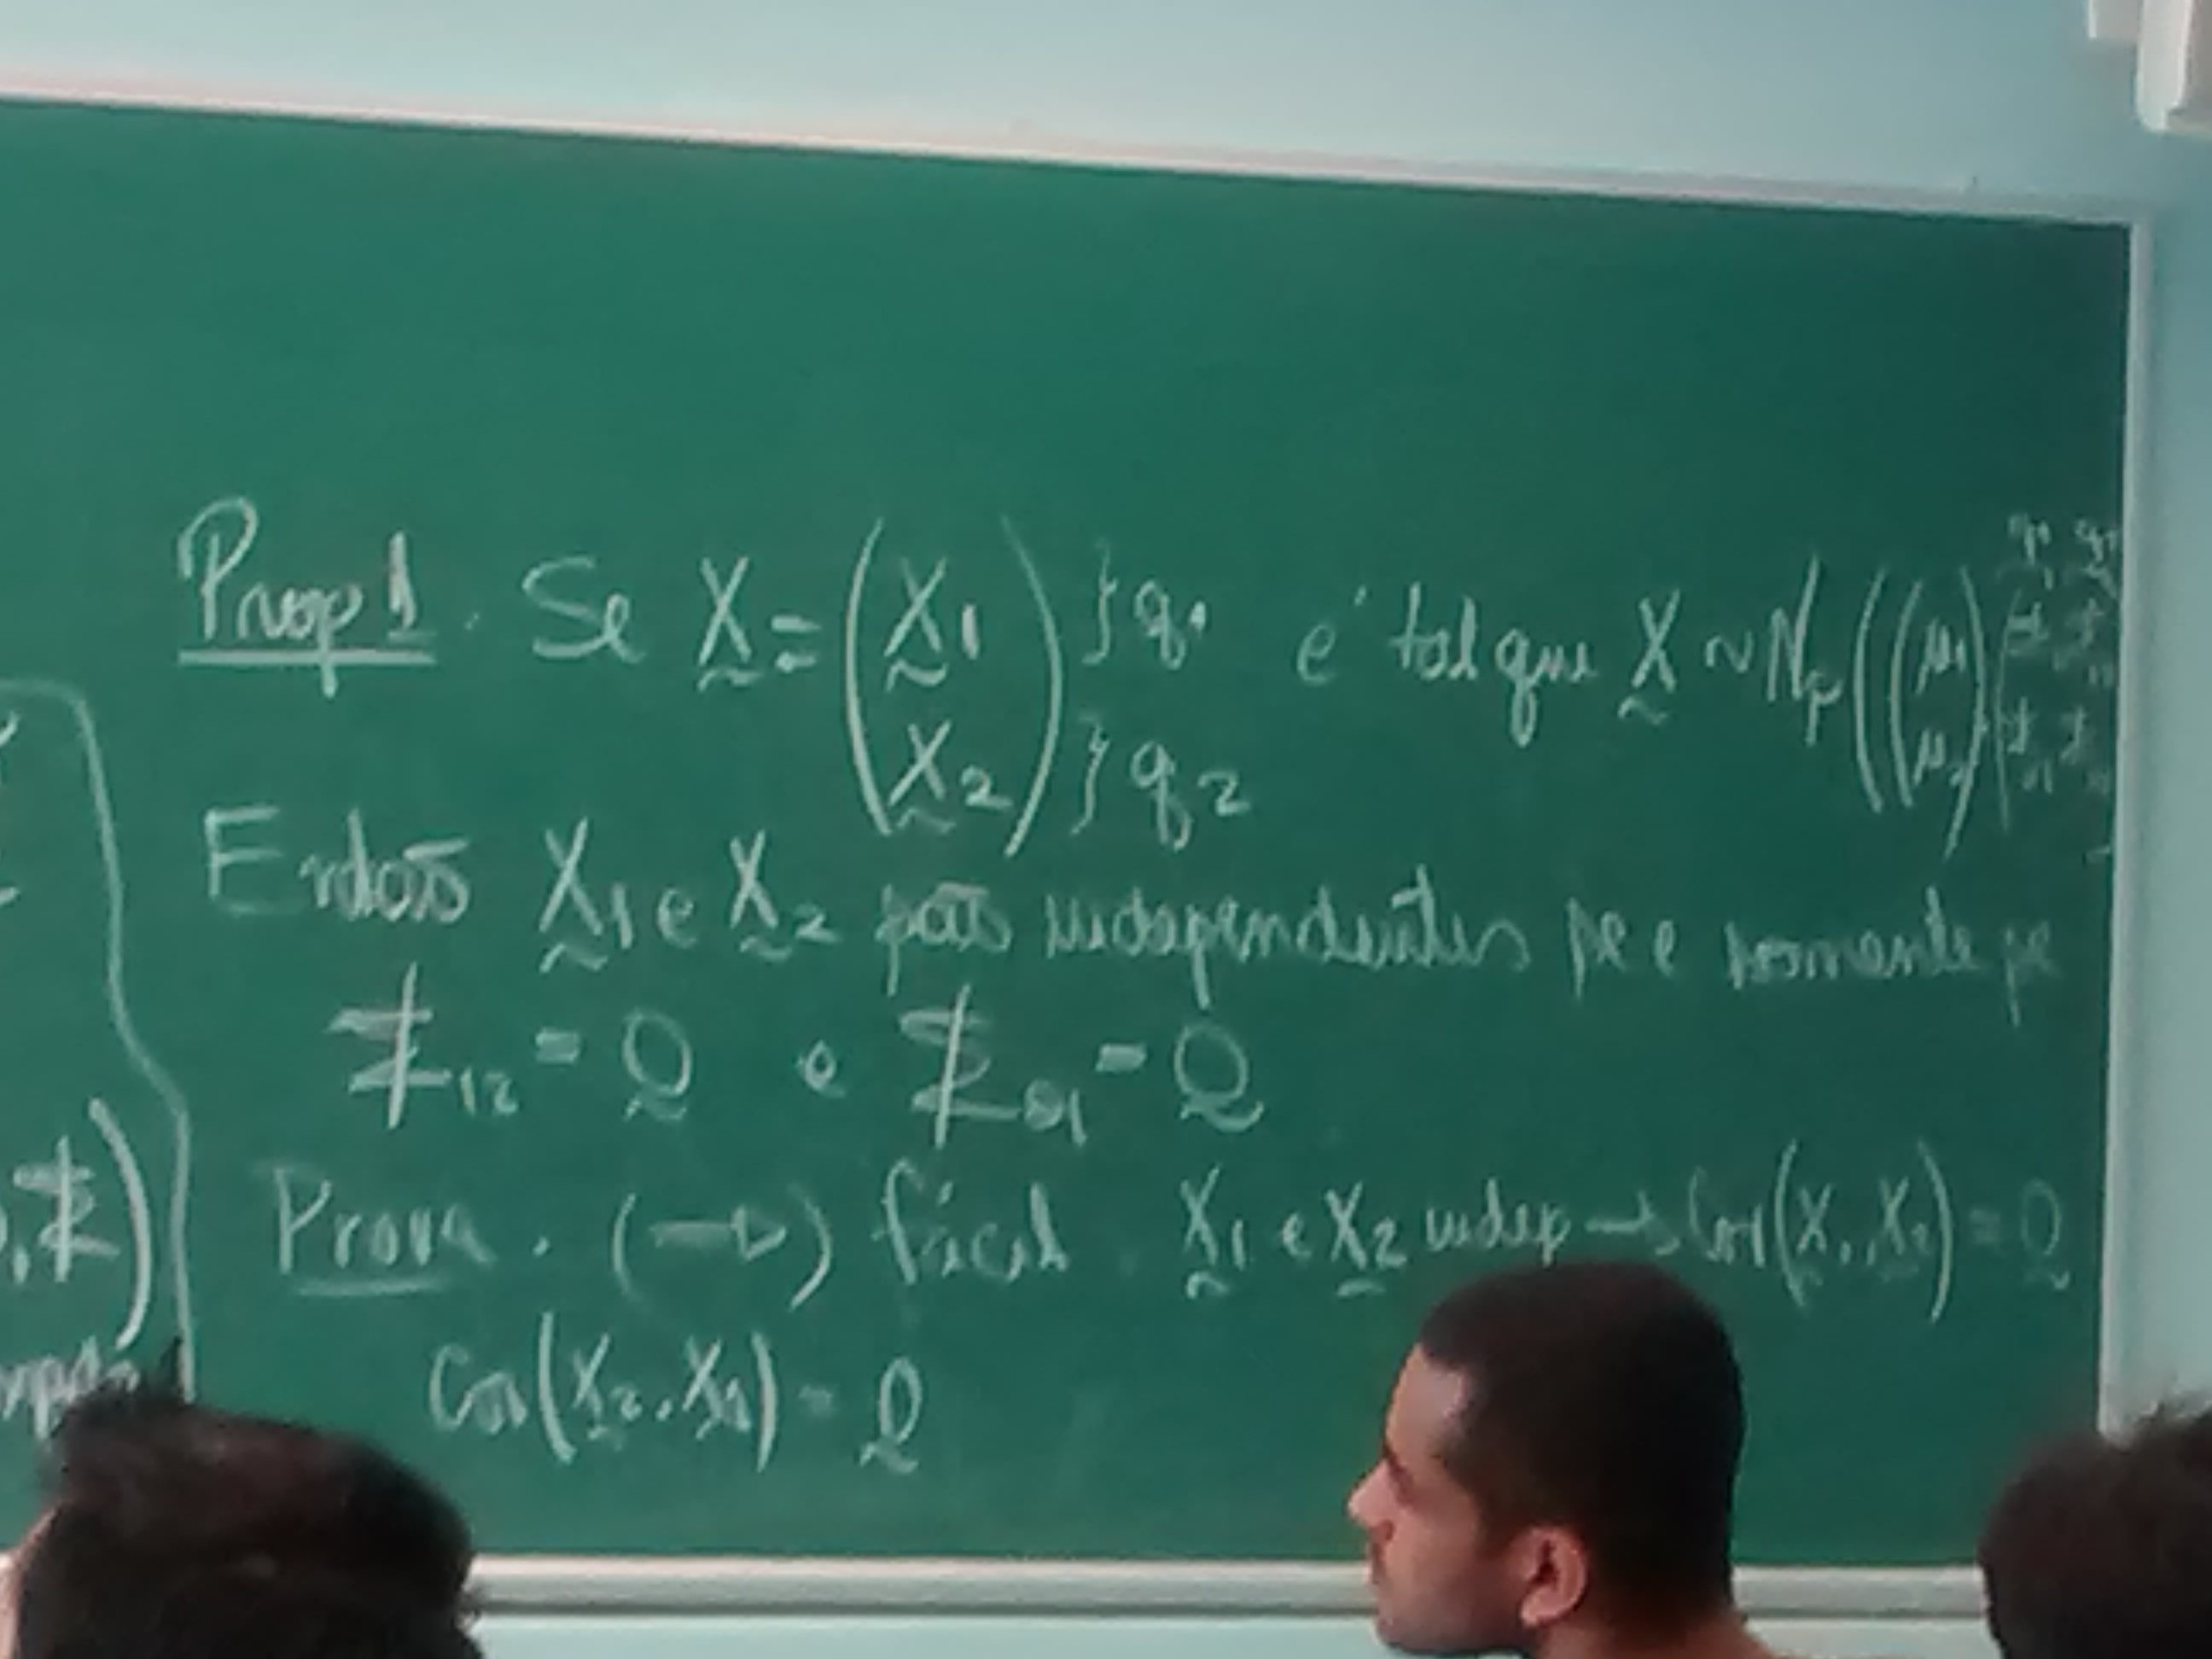 Prop 1. Se X̰ = (X̰1 } q1 é tal que X̰ ~ Np((μ1
X̰2) } q2 μ2)
Então X̰1 e X̰2 são independentes se e somente se
Σ12 = 0̰ e Σ21 = 0̰
Prova. (→) fácil. X̰1 e X̰2 indep → Cov(X̰1, X̰2) = 0̰
Cov(X̰2, X̰1) = 0̰
, Σ)